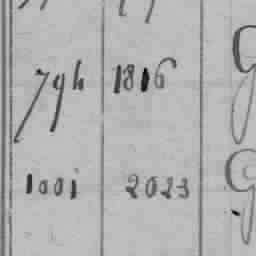 794 1816 G
1001 2023 G